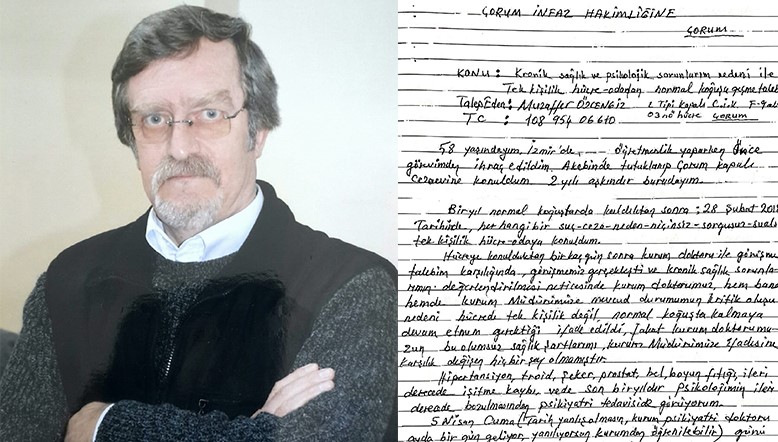 ÇORUM İNFAZ HAKİMLİĞİNE
ÇORUM
KONU: Kronik sağlık ve psikolojik sorunlarım nedeni ile
Tek kişilik hücre-odadan normal koğuşa geçme talebi
Talep Eden: Muzaffer ÖZCENGİZ L Tipi Kapalı C.i.k. F-
TC: 108 954 06610 03 nö hücre ÇORUM
58 yaşındayım, İzmir'de, öğretmenlik yaparken önce
görevimden ihraç edildim. Akebinde tutuklanıp Çorum kapalı
Cezaevine konuldum 2 yılı aşkındır buradayım.
Biryıl normal koğuşlarda kaldıktan sonra: 28 Şubat 201
Tarihinde, her hangi bir suç-ceza-neden-niçinsiz-sorgusuz-suals
tek kişilik hücre-odaya konuldum.
Hücreye konulduktan bir kaç gün sonra kurum doktoru ile görüşme
talebim karşılığında, görüşmemiz gerçekleşti ve kronik sağlık sorunla-
rımın değerlendirilmesi neticesinde kurum doktorumuz, hem bana
hemde kurum Müdürümüze mevcud durumumun kritik oluşu
nedeni hücrede tek kişilik değil, normal koğuşta kalmaya
devam etmem gerektiği ifade edildi, fakat kurum doktorumu-
zun bu olumsuz sağlık şartlarımı, kurum Müdürümüze ifadesine
karşılık değişen hiç bir şey olmamıştır.
Hipertansiyon, troid, şeker, prostat, bel, boyun fıtığı, ileri
derecede işitme kaybı, vede son biryıldır psikolojimin ileri
derecede bozulmasından psikiyatri tedaviside görüyorum.
5 Nisan Cuma (Tarih yanlış olmasın, kurum psikiyatri doktoru
ayda bir gün geliyor, yanılıyorsun kurumdan öğrenilebilir) günü